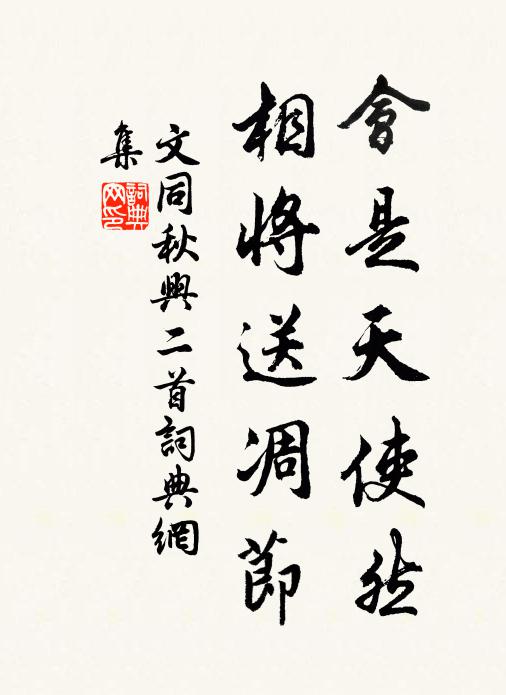 會是天使然
相將送凋節
文同秋興二首詞典網
集
詞典
网印